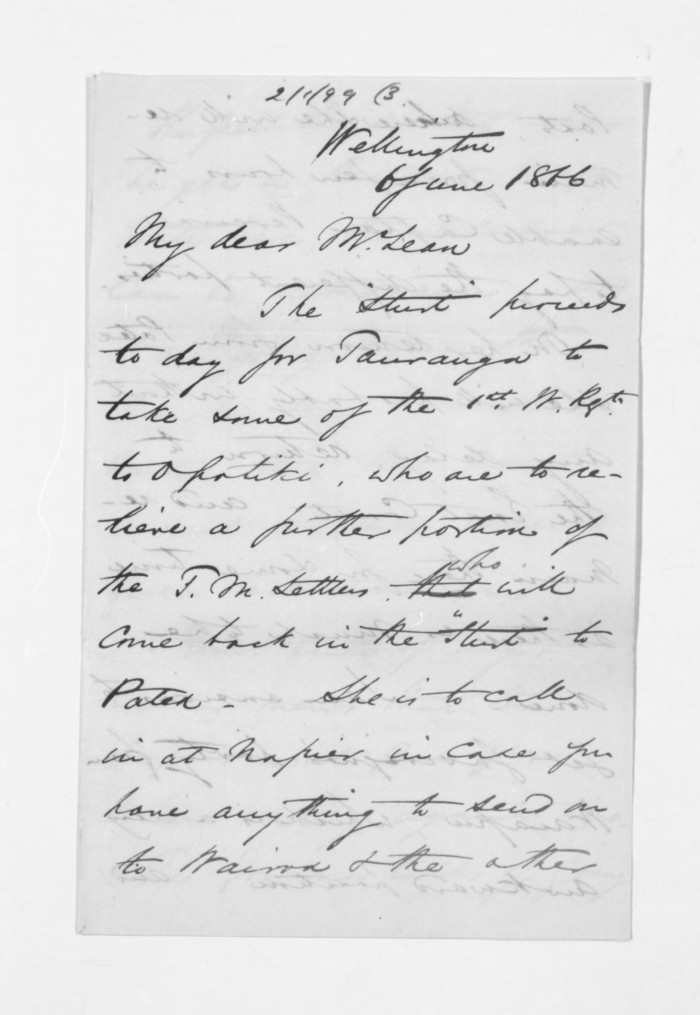 2/1/99 (3
Wellington
6 June 1866
My dear McLean
The "Sturt" proceeds
to day for Tauranga to
take some of the 1st. W. Rgt.
to Opotiki, who are to re-
lieve a further portion of
the T. M. Settlers. who will
come back in the "Sturt" to
Patea - She is to call
in at Napier in case you
have anything to send on
to Wairoa & the other